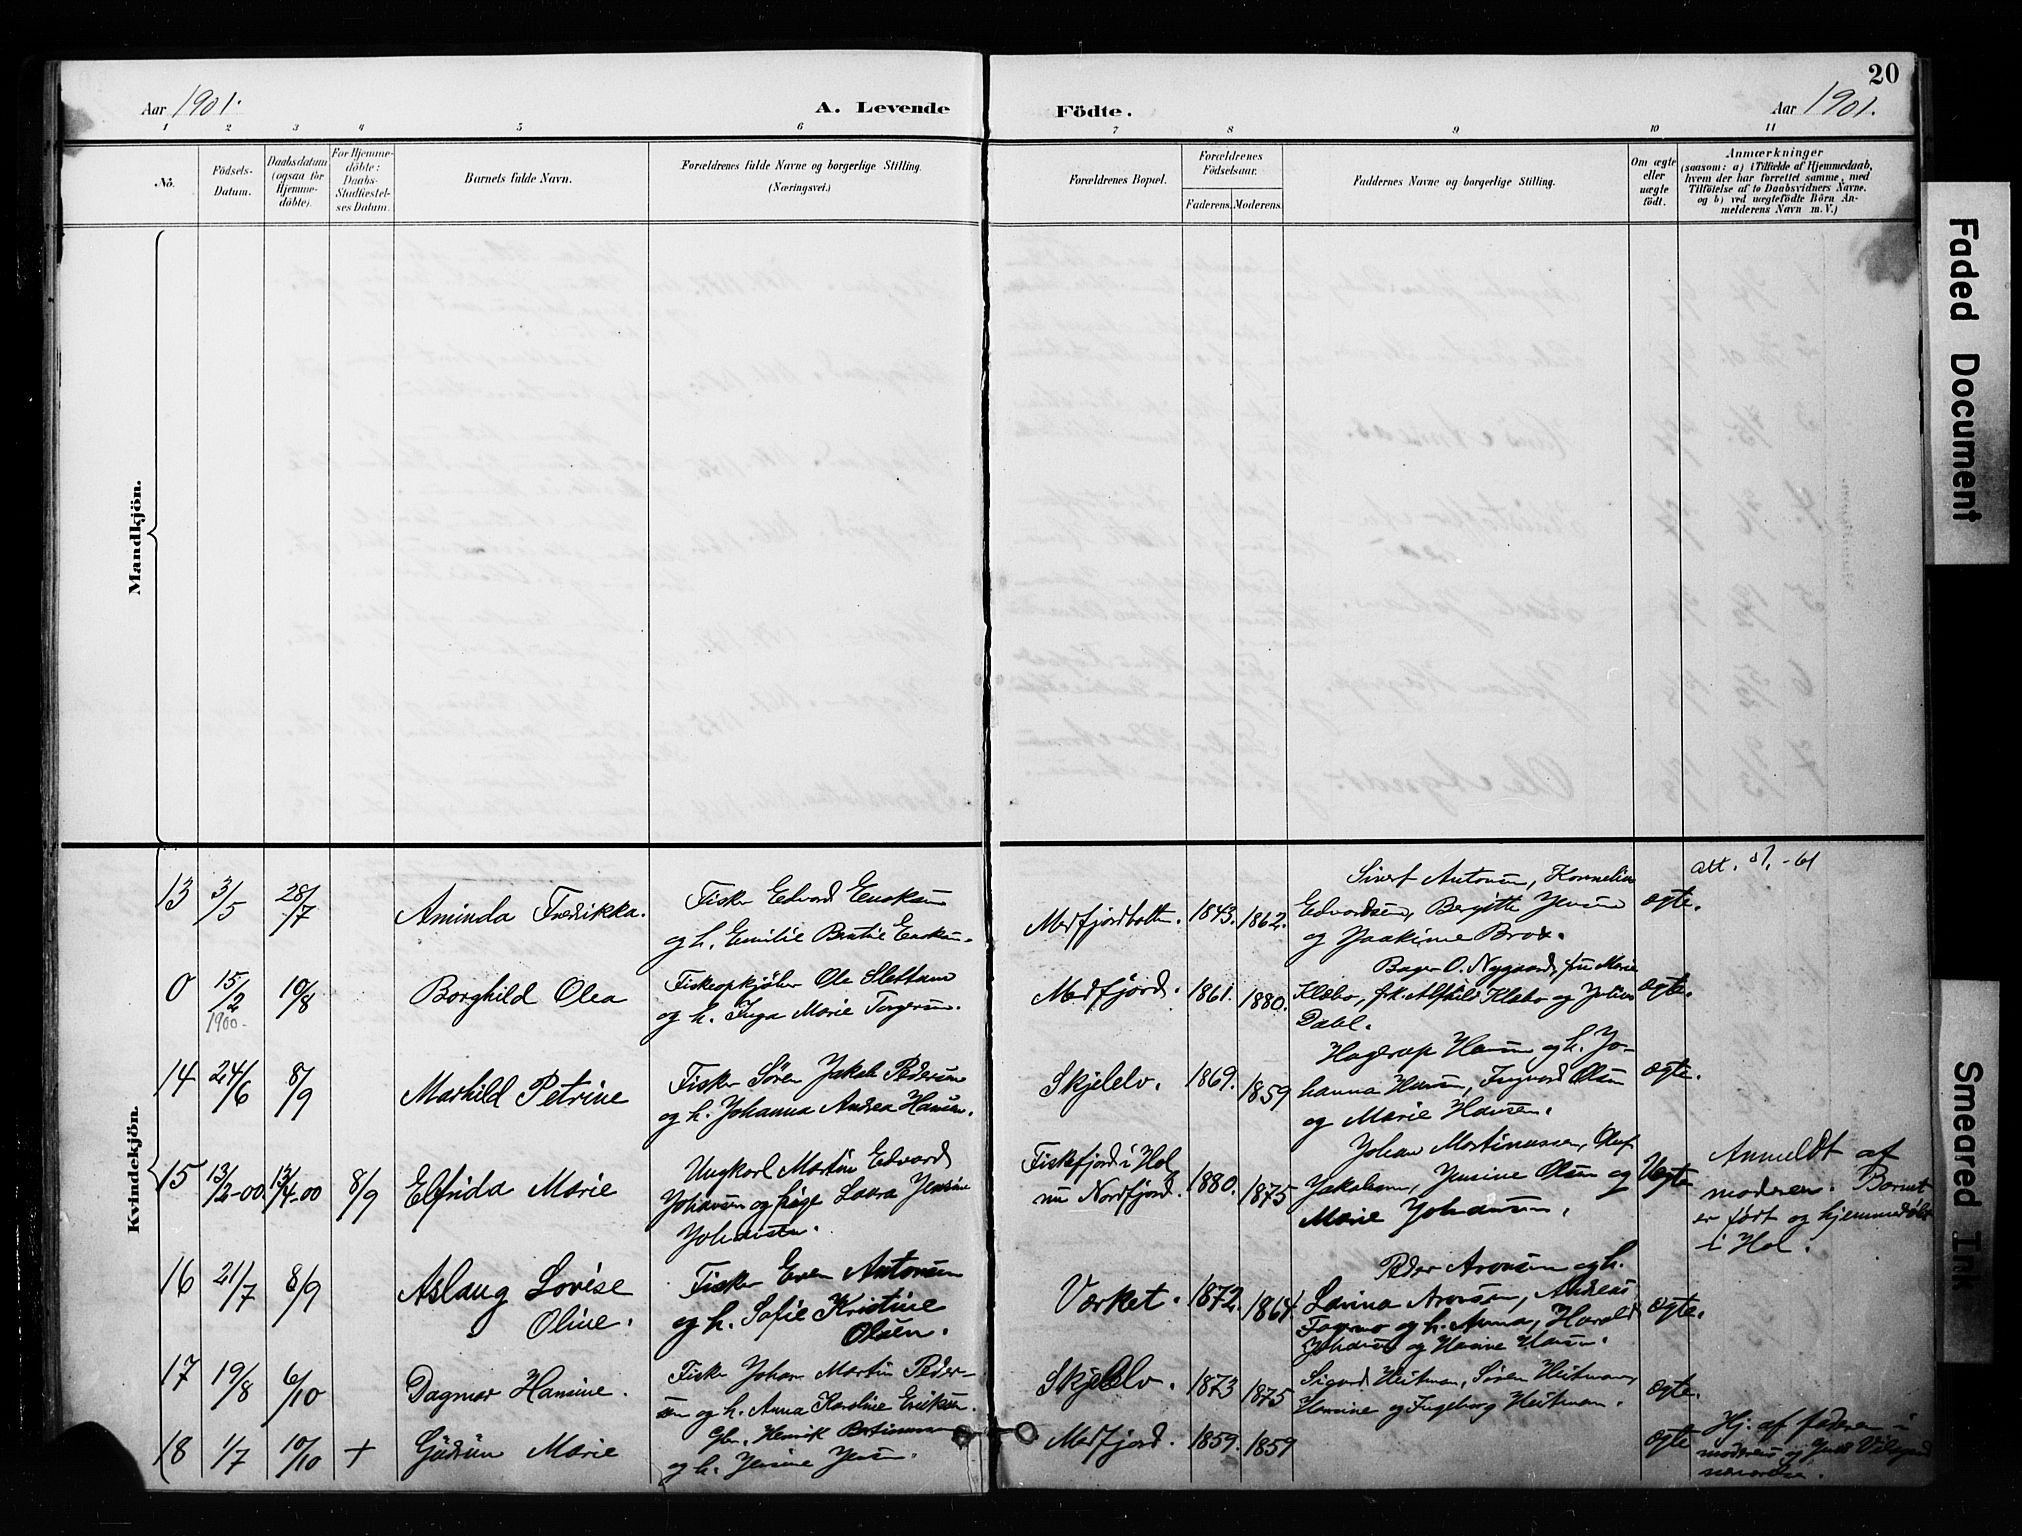 20
Aar 1901.
A. Levende
Födte.
Aar 1901.
1 2 3 4 5 6 7 8 9 10 11
No.
Födsels-
Datum.
Daabsdatum
(ogsaa for
Hjemme-
döbte).
For Hjemme-
döbte:
Daabs-
Stadfæstel-
ses Datum.
Barnets fulde Navn.
Forældrenes fulde Navne og borgerlige Stilling.
(Næringsvei.)
Forældrenes Bopæl.
Forældrenes
Födselsaar.
Faderens.
Moderens.
Faddernes Navne og borgerlige Stilling.
Om ægte
eller
uægte
födt.
Anmærkninger
(saasom: a) i Tilfælde af Hjemmedaab,
hvem der har forrettet samme, med
Tilföielse af to Daabsvidners Navne.
og b) ved uægtefödte Börn An-
melderens Navn m. V.)
Mandkjön.
Kvindekjön.
13 3/5 28/7 Aminda Fredrikka.
Fisker Edvard
og h. Emilie
Medfjordbotn. 1843. 1862.
Sivert Antonsen, Kornelius
Edvardsen, Bergitte Jensen
og Joakime Brox.
ægte.
att. -61
0 15/2 1900. 10/8 Borghild Olea
Fiskeopkjøber Ole Slettum
og h. Inga Marie Torgersen.
Medfjord. 1861. 1880.
Bager O. Nygaard, fru Marie
Klæbo, frk. Alfhild Klæbo og Julius
Dahl.
ægte.
14 24/6 8/9 Marhild Petrine
Fisker Sören Jakob Pedersen
og h. Johanna Andrea Hansen.
Skjelelv. 1869. 1859
Hagerup Hansen og h. Jo-
hanna Hansen, Ingvard Olsen
og Marie Hansen.
ægte.
15 13/2-00 13/4-00 8/9 Elfrida Marie
Ungkarl Martin Edvard
Johansen og pige Laura Jensine
Fiskefjord i Hol
nu Nordfjord. 1880. 1875
Johan Martinussen, Oluf
Jakobsen, Jensine Olsen og
Marie Johansen.
Uægte
Anmeldt af
moderen. Barnet
er født og hjemmedøbt
i Hol.
16 21/7 8/9 Aslaug Lovise
Oline.
Fisker Even Antonsen
og h. Sofie Kristine
Olsen.
Værket. 1872. 1864.
Peder Aronsen og h.
Lavina Aronsen, Andreas
Fagermo og h. Anna, Harald
Johansen og Hansine Hansen.
ægte.
17 19/8 6/10 Dagmar Hansine.
Fisker Johan Martin Peder-
sen og h. Anna Karoline Eriksen.
Skjelelv. 1873 1875
Sigurd Heitman, Sören Heitman,
Hansine og Ingeborg Heitman.
ægte.
18 1/7 10/10 + Gudrun Marie
Gbr. Henrik Bertinussen
og h. Jensine Jensen.
Medfjord. 1859. 1859
ægte
Hj. af faderen i
moderens og
nærværelse.
Faded Document
Smeared Ink